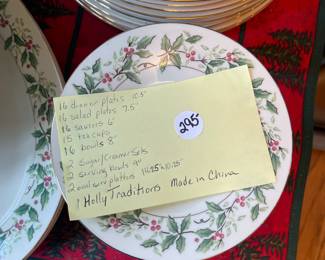 16 dinner plates 10.5"
16 salad plates 7.5"
16 saucers 6"
15 tea cups
16 bowls 8"
2 Sugar/Creamer Sets
2 serving bowls 9"
2 oval serv platters
1 Holly Traditions Made in China
295